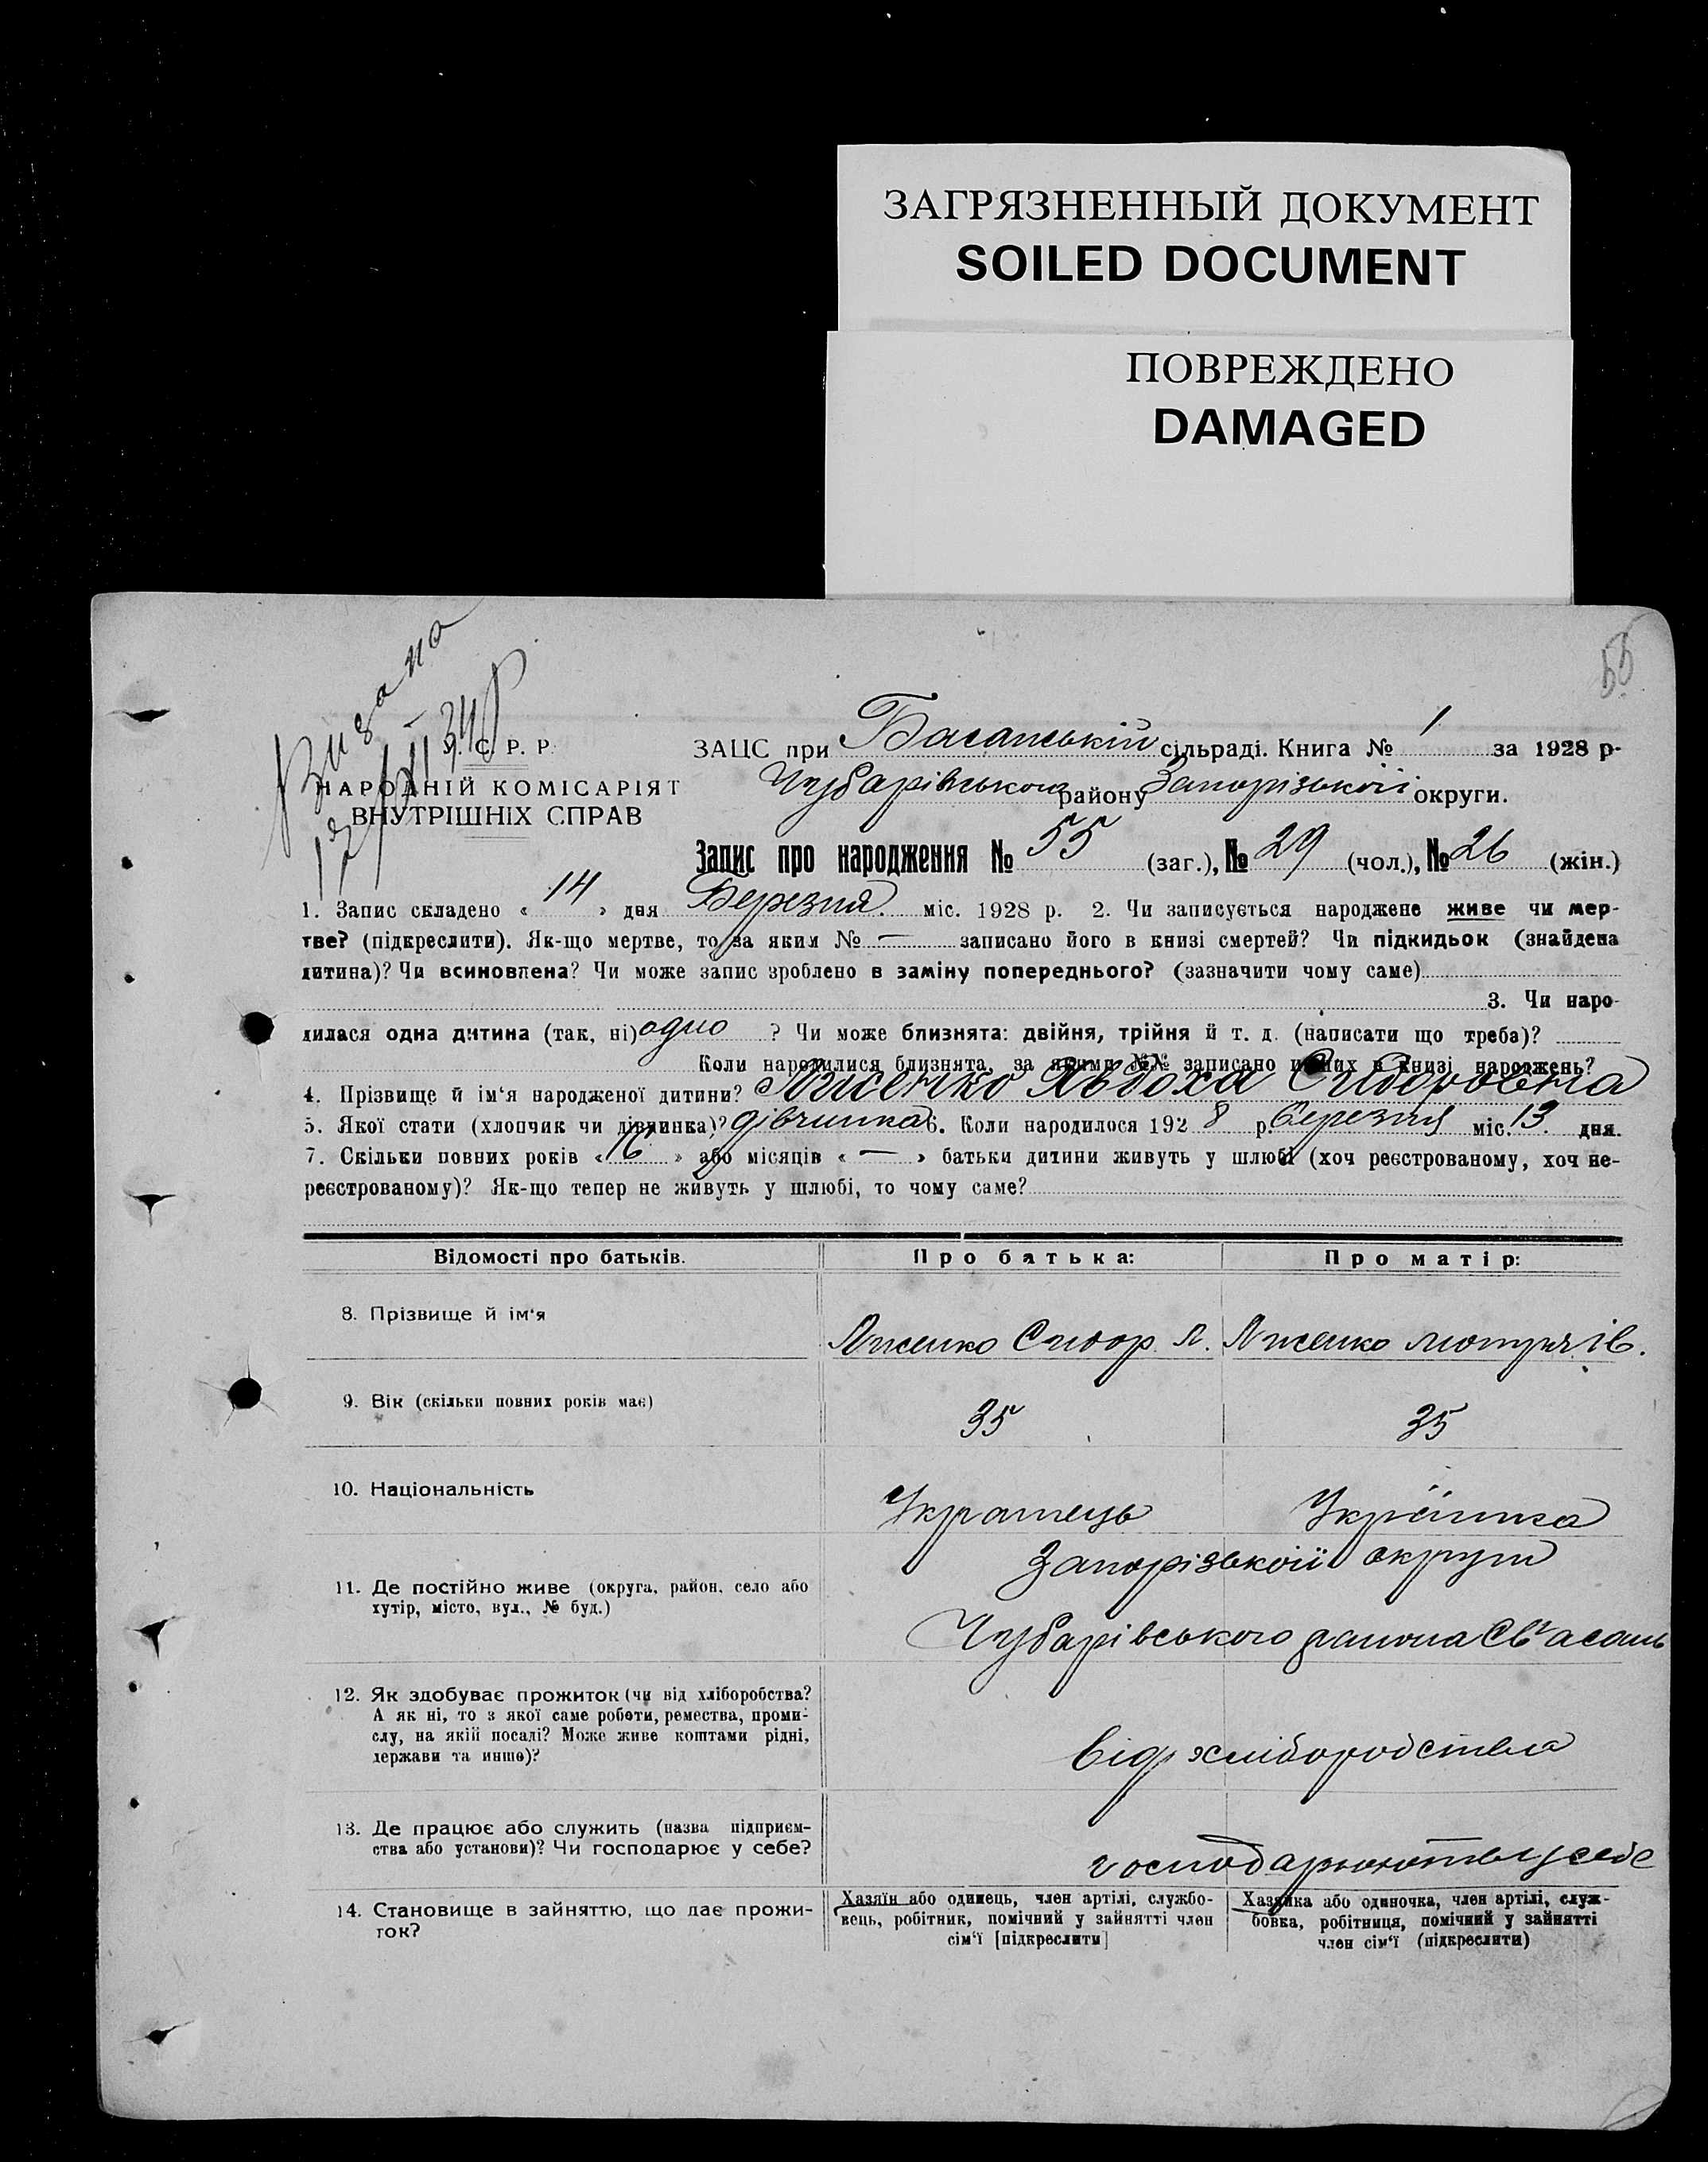 ЗАГРЯЗНЕННЫЙ ДОКУМЕНТ
SOILED DOCUMENT
ПОВРЕЖДЕНО
DAMAGED
55
У. С. Р. Р.
НАРОДНІЙ КОМІСАРІЯТ
ВНУТРІШНІХ СПРАВ
ЗАЦС при Басанській сільраді. Книга № 1 за 1928 р.
Чубарівського району Запорізької округи.
Запис про народження № 55 (заг.), № 29 (чол.), № 26 (жін.)
1. Запис складено « 14 » дня Березня міс. 1928 р. 2. Чи записується народжене живе чи мер-
тве? (підкреслити). Як-що мертве, то за яким № — записано його в книзі смертей? Чи підкидьок (знайдена
дитина)? Чи всиновлена? Чи може запис зроблено в заміну попереднього? (зазначити чому саме)
3. Чи наро-
дилася одна дитина (так, ні) одно ? Чи може близнята: двійня, трійня й т. д. (написати що треба)?
Коли народилися близнята, за якими №№ записано инших в книзі народжень?
4. Прізвище й ім'я народженої дитини? Лисенко Явдоха Сидоровна
5. Якої стати (хлопчик чи дівчинка)? дівчинка 6. Коли народилося 1928 р. березня міс. 13 дня.
7. Скільки повних років « 16 » або місяців « — » батьки дитини живуть у шлюбі (хоч реєстрованому, хоч не-
реєстрованому)? Як-що тепер не живуть у шлюбі, то чому саме?
Відомості про батьків. Про батька: Про матір:
8. Прізвище й ім'я
Лисенко Сидор Л. Лисенко ів.
9. Вік (скільки повних років має)
35 35
10. Національність
Украінець Украінка
11. Де постійно живе (округа, район, село або
хутір, місто, вул., № буд.)
Запорізькоїі округи
Чубарівського района с Басань
12. Як здобуває прожиток (чи від хліборобства?
А як ні, то з якої саме роботи, ремества, проми-
слу, на якій посаді? Може живе коштами рідні,
держави та инше)?
від хліборобства
13. Де працює або служить (назва підприєм-
ства або установи)? Чи господарює у себе?
господарюють у себе
14. Становище в зайняттю, що дає прожи-
ток?
Хазяїн або одинець, член артілі, службо-
вець, робітник, помічний у зайнятті член
сім'ї [підкреслити]
Хазяйка або одиночка, член артілі, служ-
бовка, робітниця, помічний у зайнятті
член сім'ї (підкреслити)